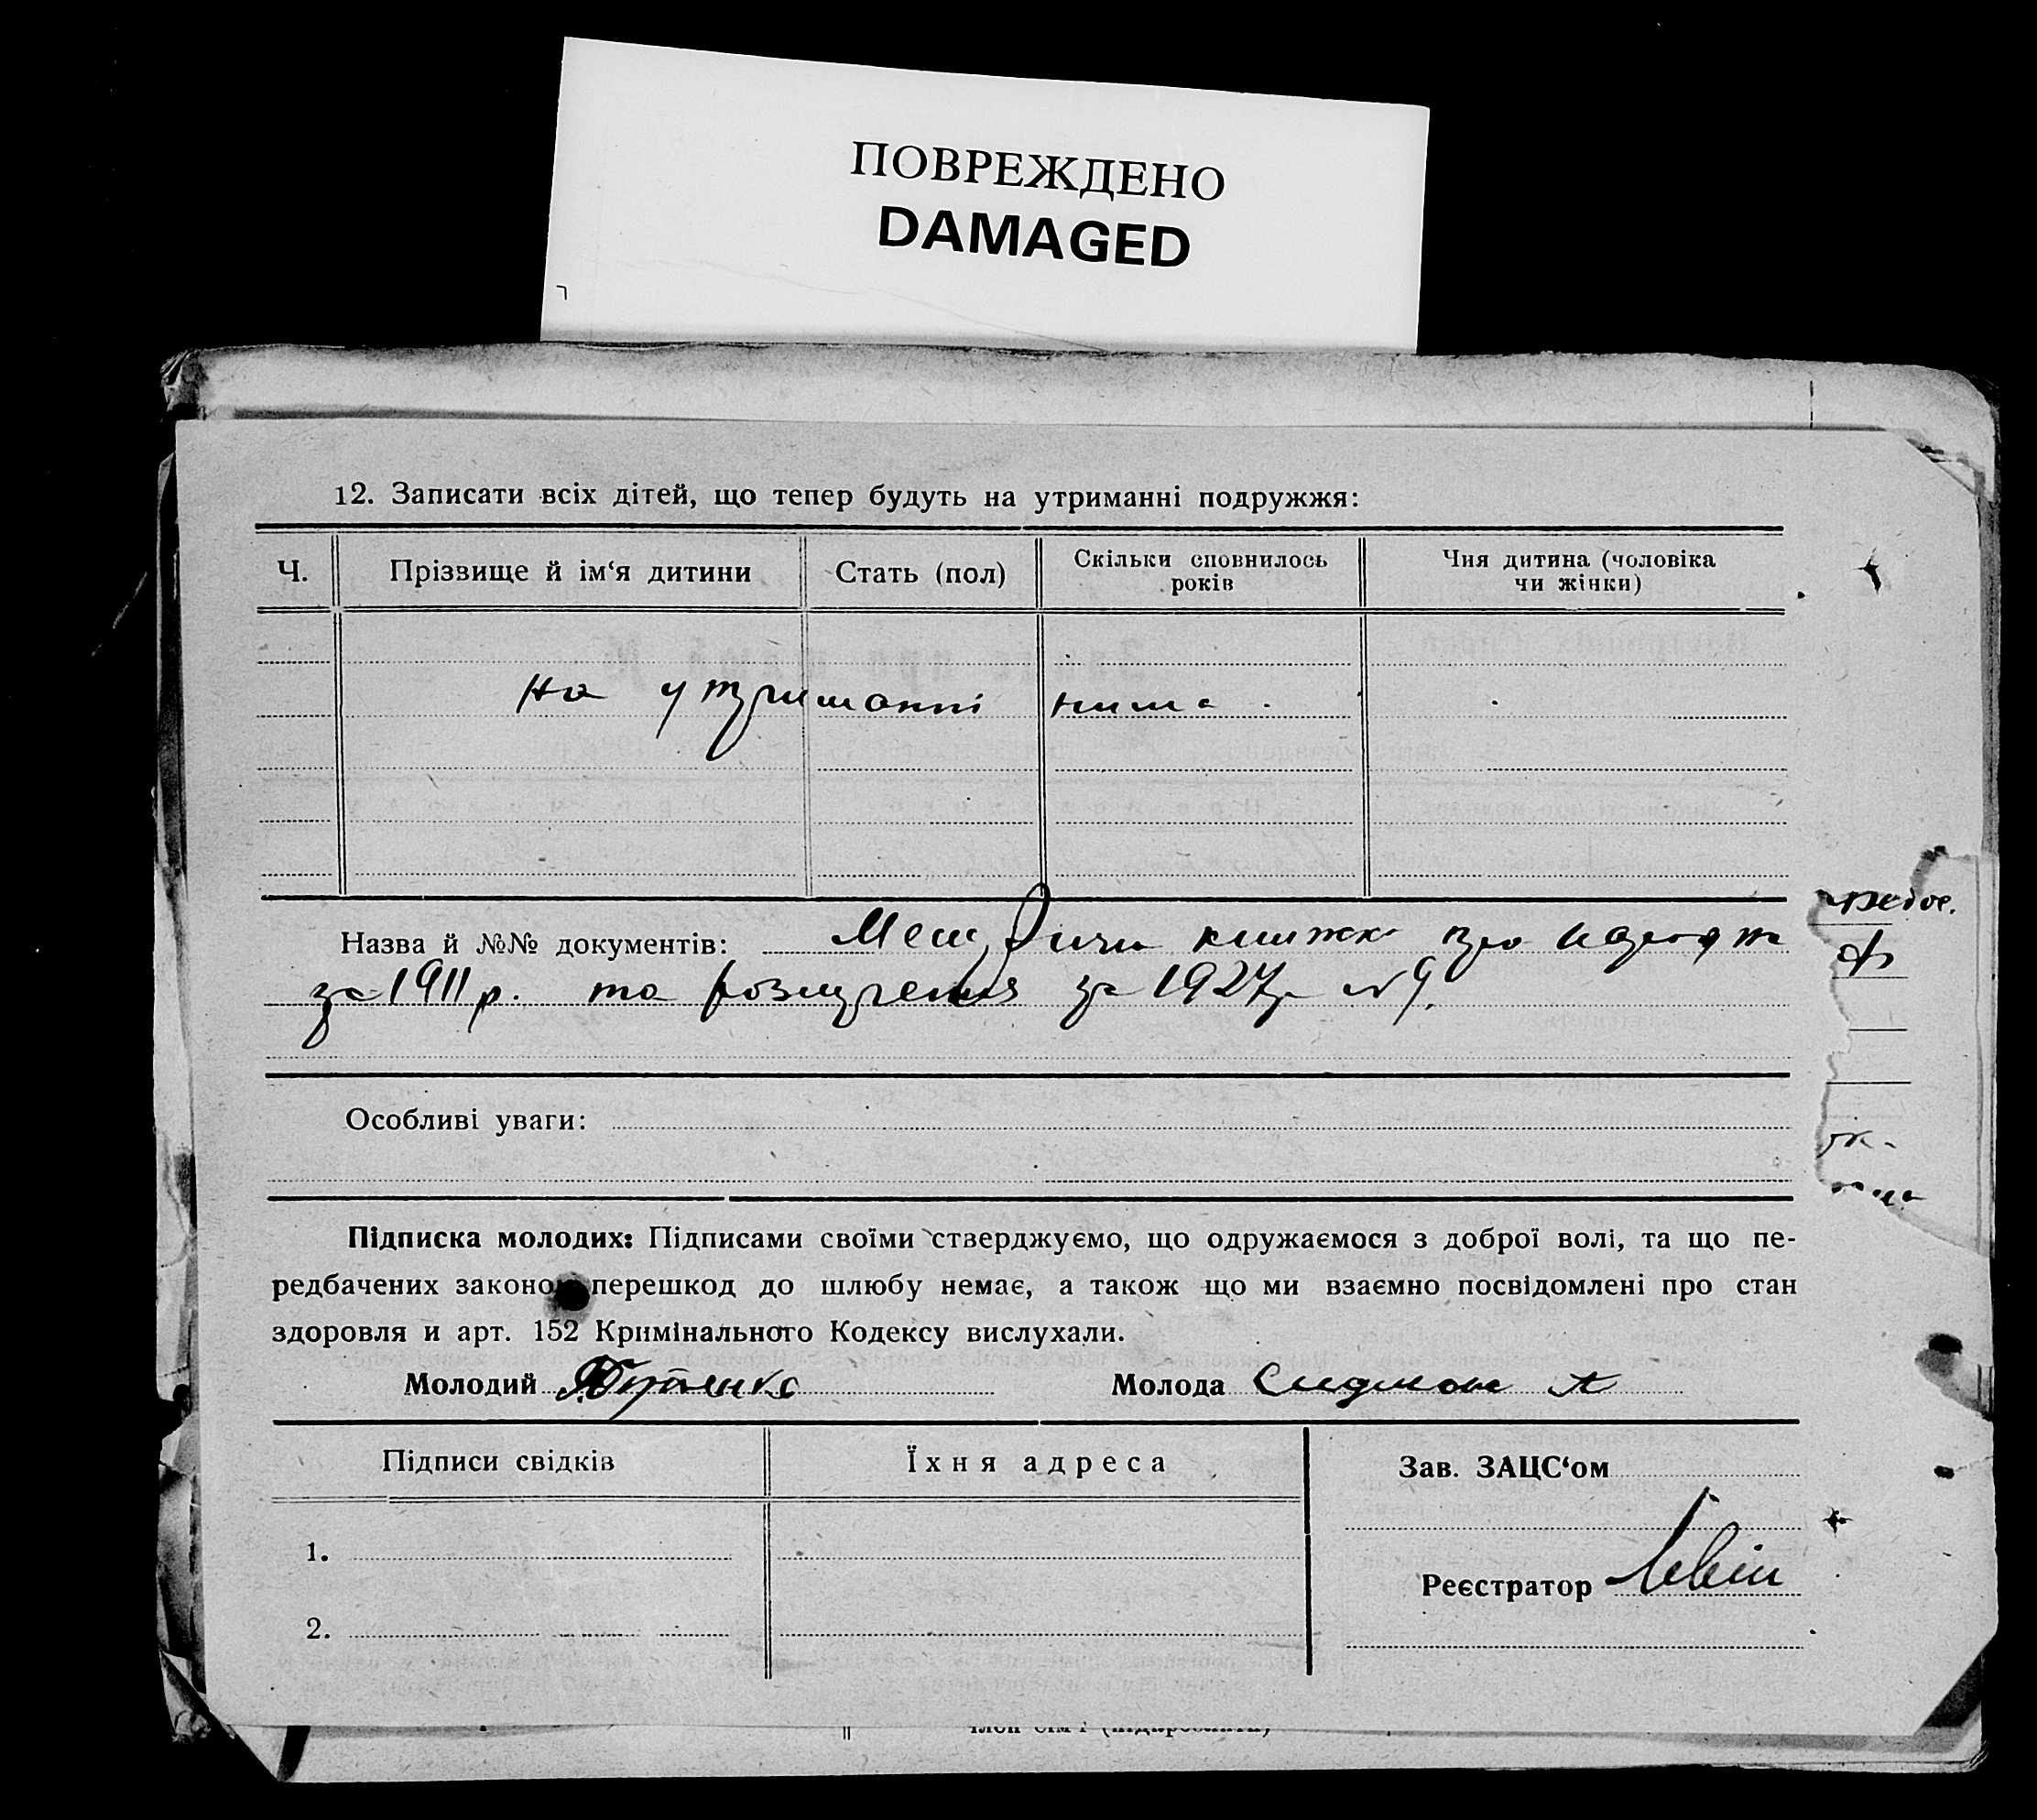 ПОВРЕЖДЕНО
DAMAGED
12. Записати всіх дітей, що тепер будуть на утриманні подружжя:
Ч.
Прізвище й ім‘я дитини
Стать (пол)
Скільки сповнилось
років
Чия дитина (чоловіка
чи жінки)
на утриманні нима.
Назва й №№ документів: книжка про
за 1911 р. та розлучення за 1927р №9.
Особливі уваги:
Підписка молодих: Підписами своїми стверджуємо, що одружаємося з доброї волі, та що пе-
редбачених законо перешкод до шлюбу немає, а також що ми взаємно посвідомлені про стан
здоровля и арт. 152 Кримінального Кодексу вислухали.
Молодий
Молода
Підписи свідків
Їхня адреса
Зав. ЗАЦС‘ом
1.
Реєстратор Левін
2.